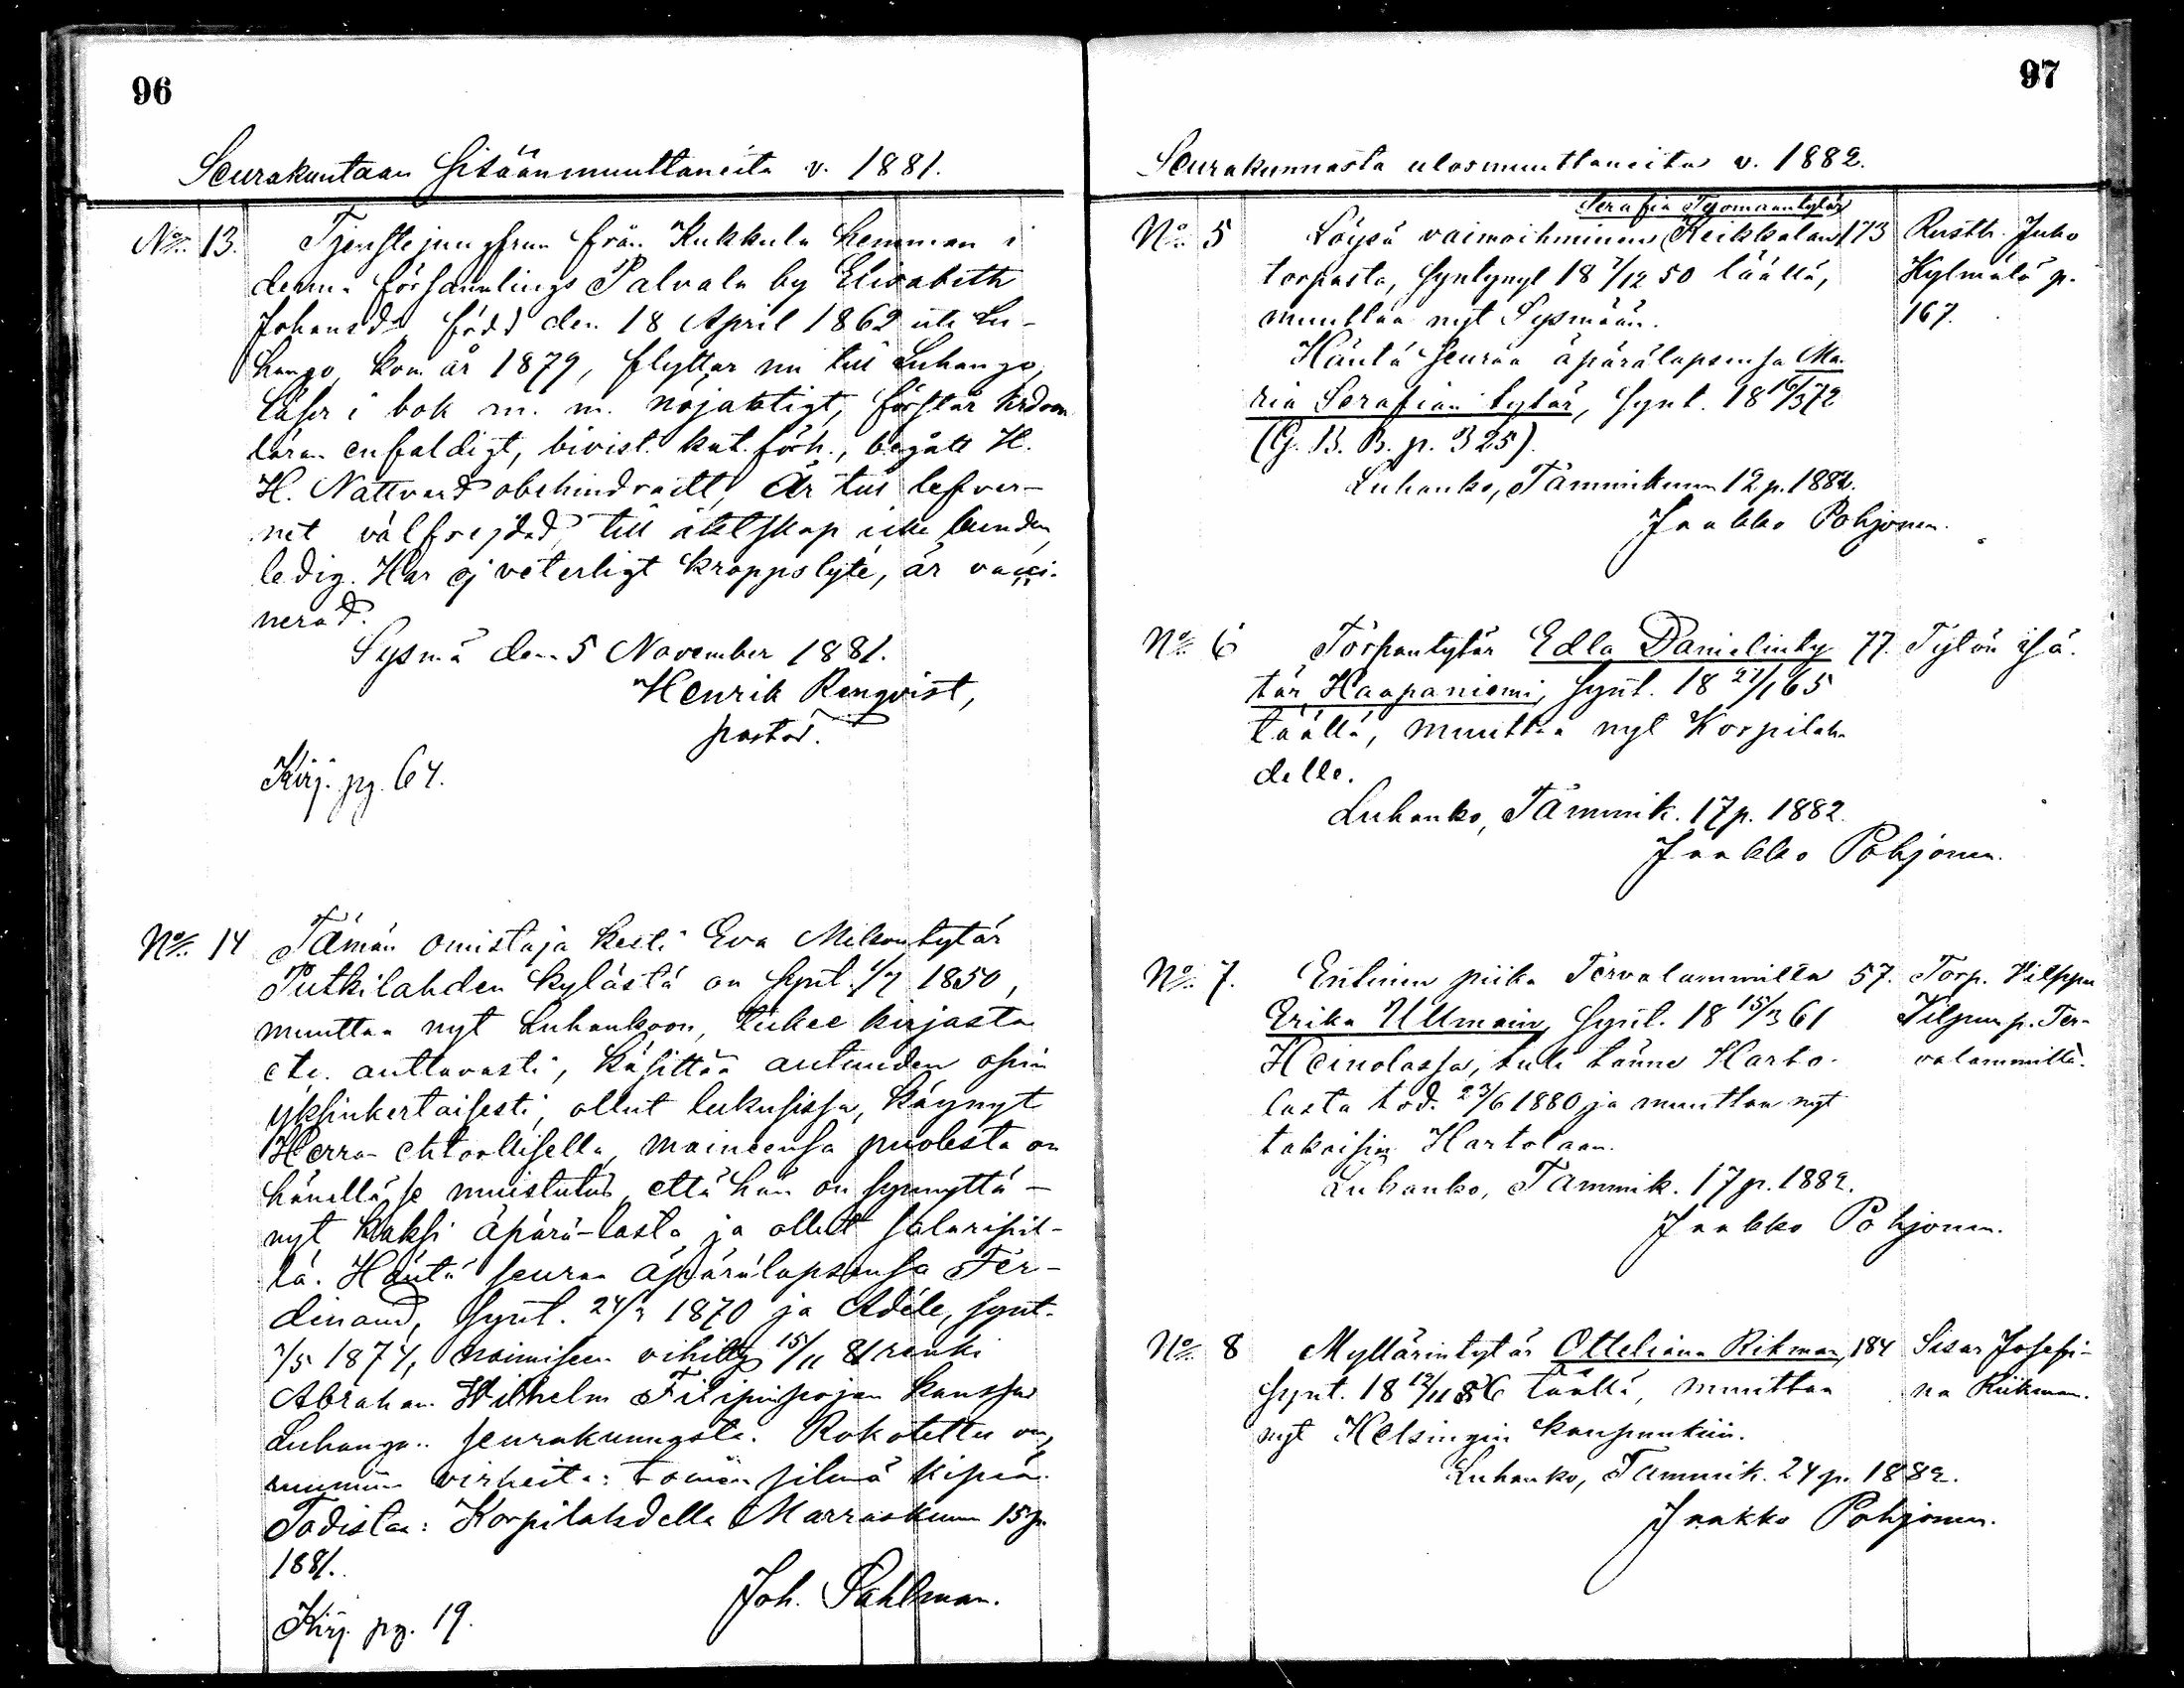 96
Seurakuntaan sisäänmuuttaneita v. 1881.
No 13. Tjenstejungfrun från Kukkula hemman i
denna församlings Palvala by Elisabeth
Johansd:r, född den 18 April 1862 uti Lu-
hango, kom år 1879, flyttar nu till Luhango;
läser i bok m. m. nöjaktigt, förstår krdom
läran enfaldigt, bivist. kat. förh., begått H.
H. Nattvard obehindradt, Är till lefver-
net välfrejdad, till äktskap icke bunden,
ledig. Har ej veterligt kroppslyte, är vacci-
nerad.
Sysmä den 5 November 1881.
Henrik Renqvist,
pastor.
Kirj. pg. 64.
No 14 Tämän omistaja leski Eva
Putkilahden kylästä on synt. 1/7 1850,
muuttaa nyt Luhankoon, lukee kirjasta
etc. auttavasti, käsittää autuuden opin
yksinkertaisesti, ollut lukusissa, käynyt
Herran ehtoollisella, maineensa puolesta on
hänellä se muistutus, että hän on synnyttä-
nyt kaksi äpärä-lasta ja ollut salaripil-
lä. Häntä seuraa äpärälapsensa Fer-
dinand, synt. 1870 ja Adéle, synt.
7/5 1874, naimiseen vihitty 15/11 81 renki
Abraham Wilhelm Filipinpojan kanssa
Luhangan seurakunnasta. Rokotettu on,
ruumiin virheitä: toinen silmä kipiä.
Todistaa: Korpilahdella Marraskuun 15 p.
1881.
Joh. Sahlman.
Kirj. pg. 19.
97
Seurakunnasta ulosmuuttaneita v. 1882.
Serafia
No 5 Löysä vaimoihminen Keikkalan 173 Rusth. Juho
torpasta, syntynyt 18 7/12 50 täällä, Kylmälä p.
muuttaa nyt Sysmään. 167.
Häntä seuraa äpärälapsensa Ma
ria Serafian tytär, synt. 18 16/3 72
(G. B. B. p. 325).
Luhanko, Tammikuun 12 p. 1882.
Jaakko Pohjonen.
No 6 Torpantytär Edla Danielinty 77. Tytön isä.
tär Haapaniemi, synt. 18 21/1 65
täällä, muuttaa nyt Korpilah
delle.
Luhanko, Tammik. 17 p. 1882.
Jaakko Pohjonen.
No 7. Entinen piika Tervalammilta 57. Torp. Vilppu
Erika Ullmain, synt. 18 15/3 61 p. Ter-
Heinolassa, tuli tänne Harto- valammilta.
lasta tod. 23/6 1880 ja muuttaa nyt
takaisin Hartolaan.
Luhanko, Tammik. 17 p. 1882.
Jaakko Pohjonen.
No 8 Myllärintytär Otteliana Rikman, 184 Sisar Josefi-
synt. 18 12/11 56 täällä, muuttaa na Riikman.
nyt Helsingin kaupunkiin.
Luhanko, Tammik. 24 p. 1882.
Jaakko Pohjonen.